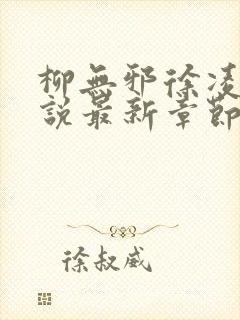 柳無邪徐凌
說最新章節
徐叔威